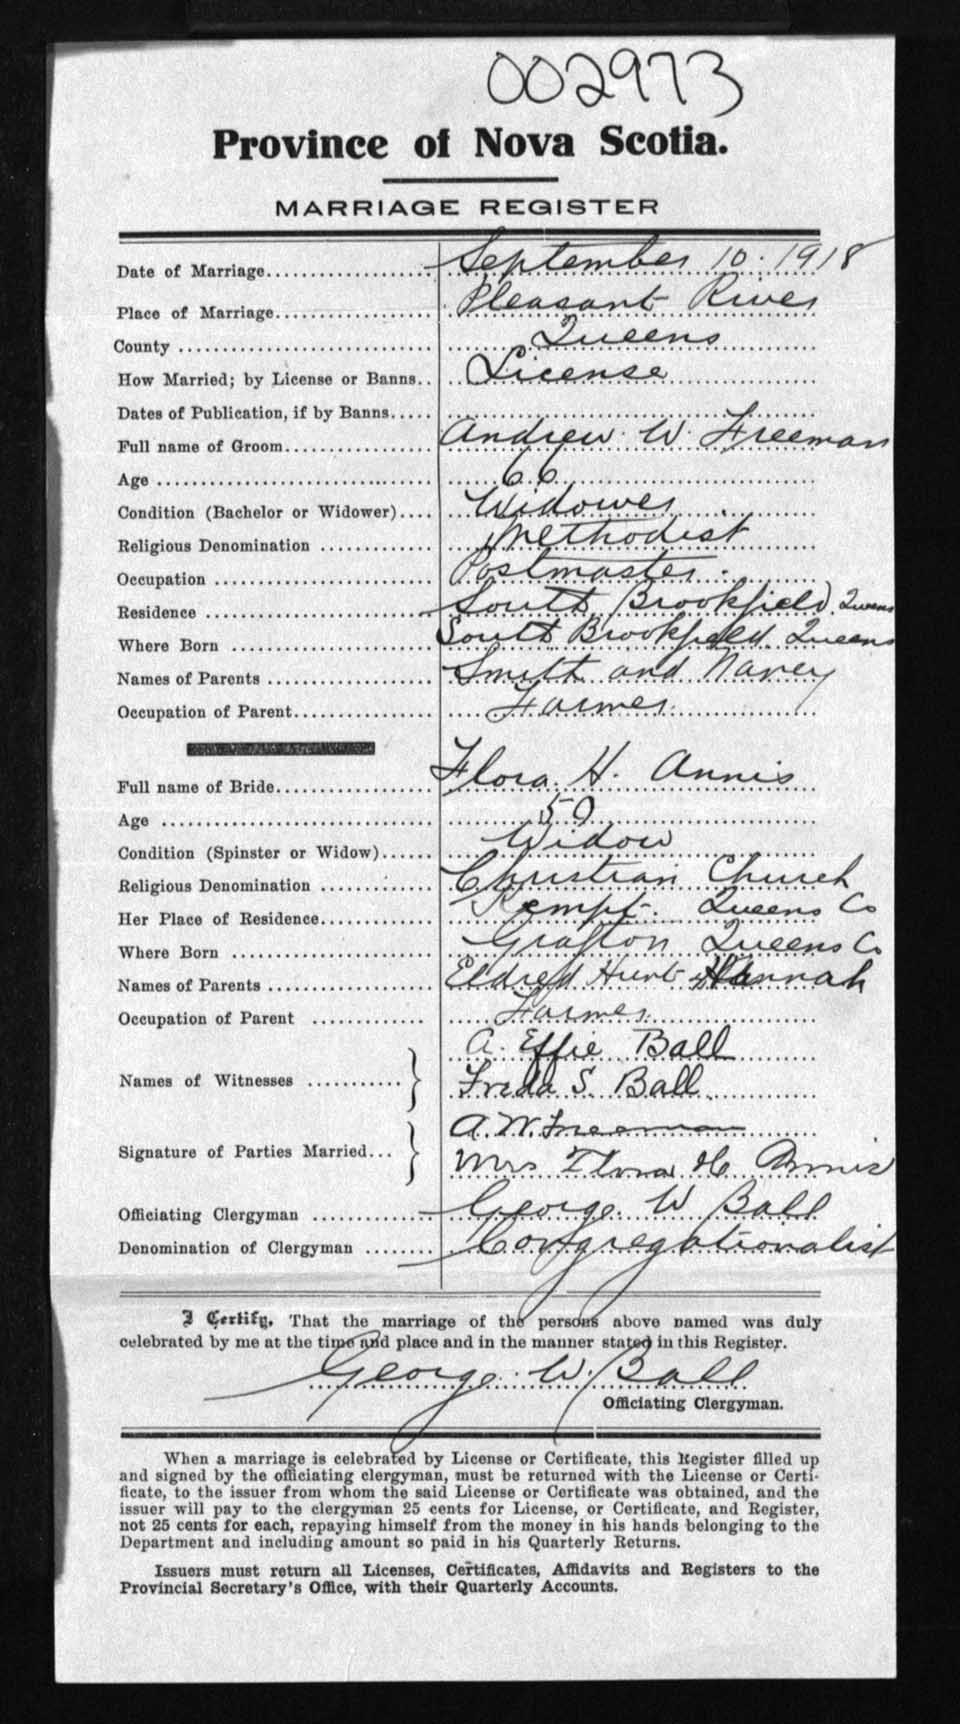 002973
Province of Nova Scotia.
MARRIAGE REGISTER
Date of Marriage.................. September 10. 1918
Place of Marriage.................. Pleasant River
County .................. Queens
How Married; by License or Banns.. License
Dates of Publication, if by Banns.....
Full name of Groom.................. Andrew W. Freeman
Age .................. 66
Condition (Bachelor or Widower).... Widower
Religious Denomination .................. Methodist
Occupation .................. Postmaster
Residence .................. South Brookfield, Queens
Where Born .................. South Brookfield Queens
Names of Parents .................. Smith and Nancy
Occupation of Parent.................. Farmer
Full name of Bride.................. Flora H. Annis
Age .................. 50
Condition (Spinster or Widow)...... Widow
Religious Denomination .................. Christian Church
Her Place of Residence.................. Kempt. Queens Co
Where Born .................. Grafton Queens Co
Names of Parents .................. Eldred Hunt & Hannah
Occupation of Parent .................. Farmer
A. Effie Ball
Names of Witnesses ...........
Freda S. Ball
A. W. Freeman
Signature of Parties Married...
Mrs Flora H Annis
Officiating Clergyman .................. George W Ball
Denomination of Clergyman ........ Congregationalist
I Certify, That the marriage of the persons above named was duly
celebrated by me at the time and place and in the manner stated in this Register.
George W Ball
Officiating Clergyman.
When a marriage is celebrated by License or Certificate, this Register filled up
and signed by the officiating clergyman, must be returned with the License or Certi-
ficate, to the issuer from whom the said License or Certificate was obtained, and the
issuer will pay to the clergyman 25 cents for License, or Certificate, and Register,
not 25 cents for each, repaying himself from the money in his hands belonging to the
Department and including amount so paid in his Quarterly Returns.
Issuers must return all Licenses, Certificates, Affidavits and Registers to the
Provincial Secretary's Office, with their Quarterly Accounts.